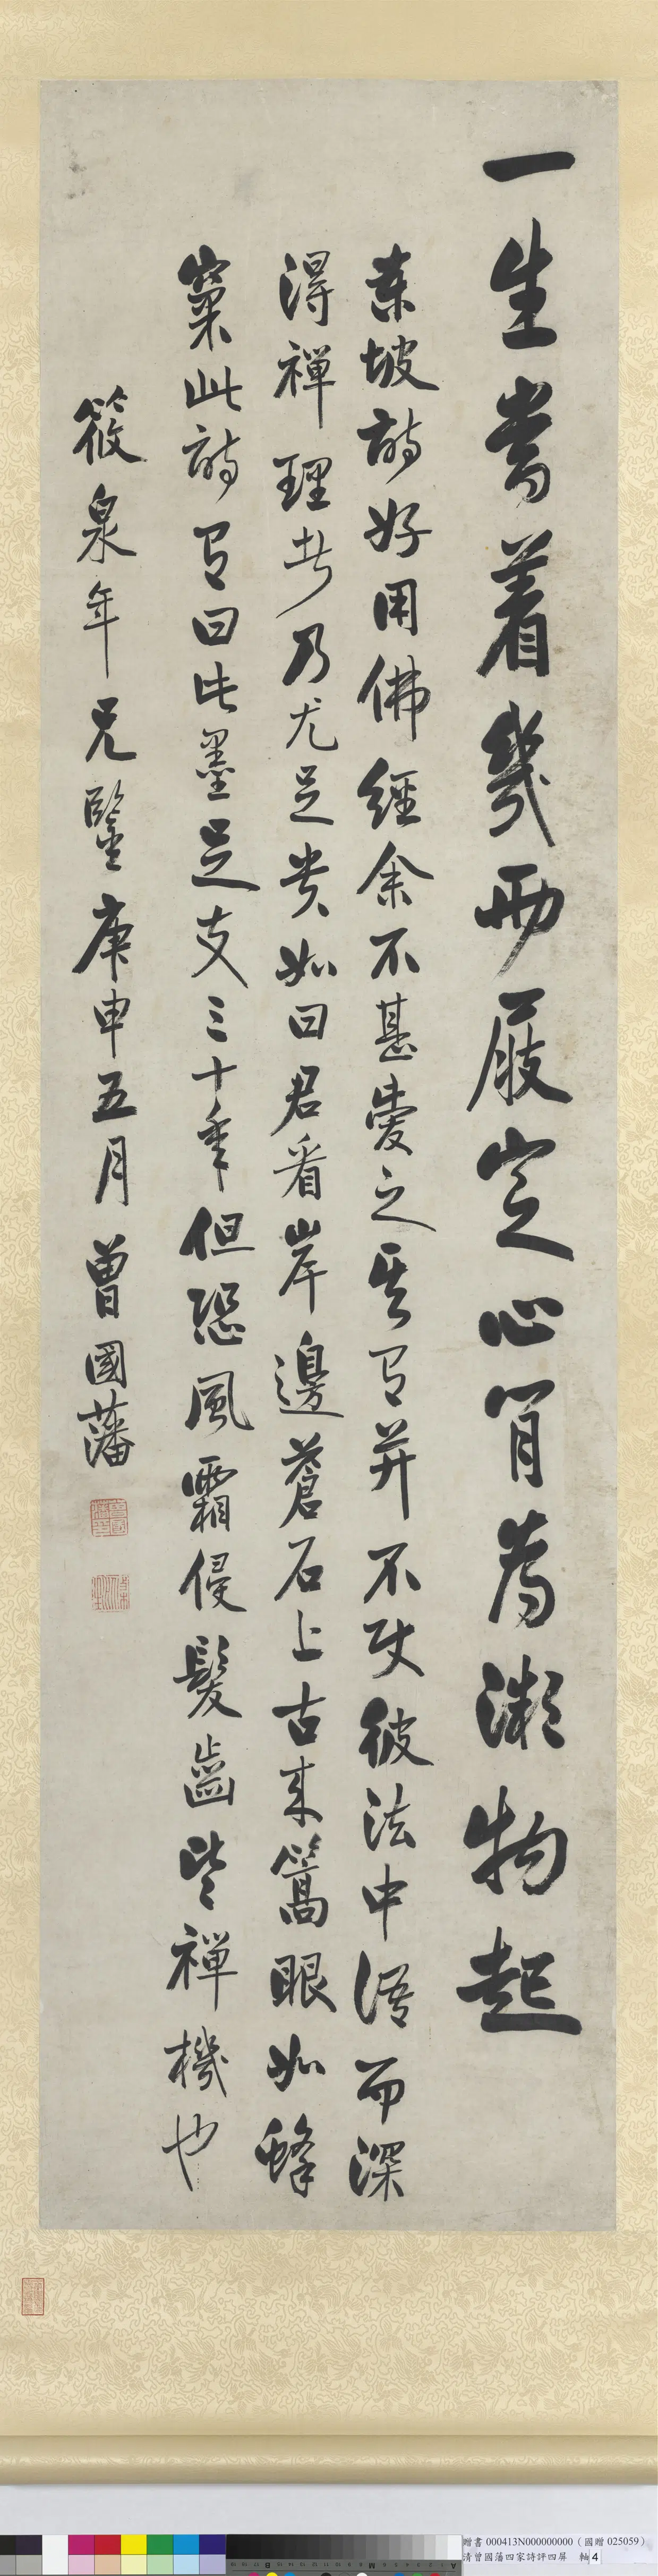 一生當著幾兩屐定心肯為微物起
東坡詩好用佛經余不甚愛之其有并不使彼法中語而深
得禪理者乃尤足貴如曰君看岸邊蒼石上古來篙眼如蜂
窠此詩有曰此墨足支三十年但恐風霜侵髮齒皆禪機也
筱泉年兄鑒庚申五月曾國藩
贈書 000413N000000000（國贈 025059）
清曾國藩四家詩評四屏 軸4